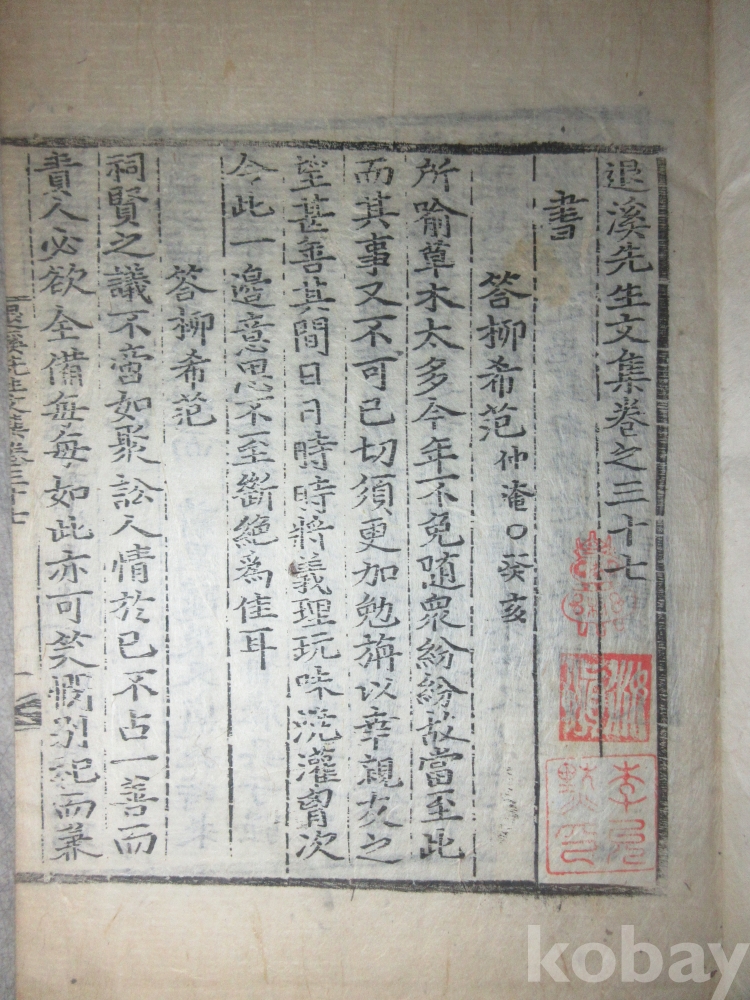 退溪先生文集卷之三十七
書
答柳希范 仲淹○癸亥
所喻草木太多今年不免随衆紛紛故當至此
而其事又不可已切須更加勉旃以幸親友之
望甚善其間日用時時將義理玩味澆灌胷次
令此一邉意思不至斷絶爲佳耳
答柳希范
祠賢之議不啻如聚訟人情於已不占一善而
責人必欲全備每每如此亦可笑慨別祀而兼
退溪先生文集卷三十七
kobay